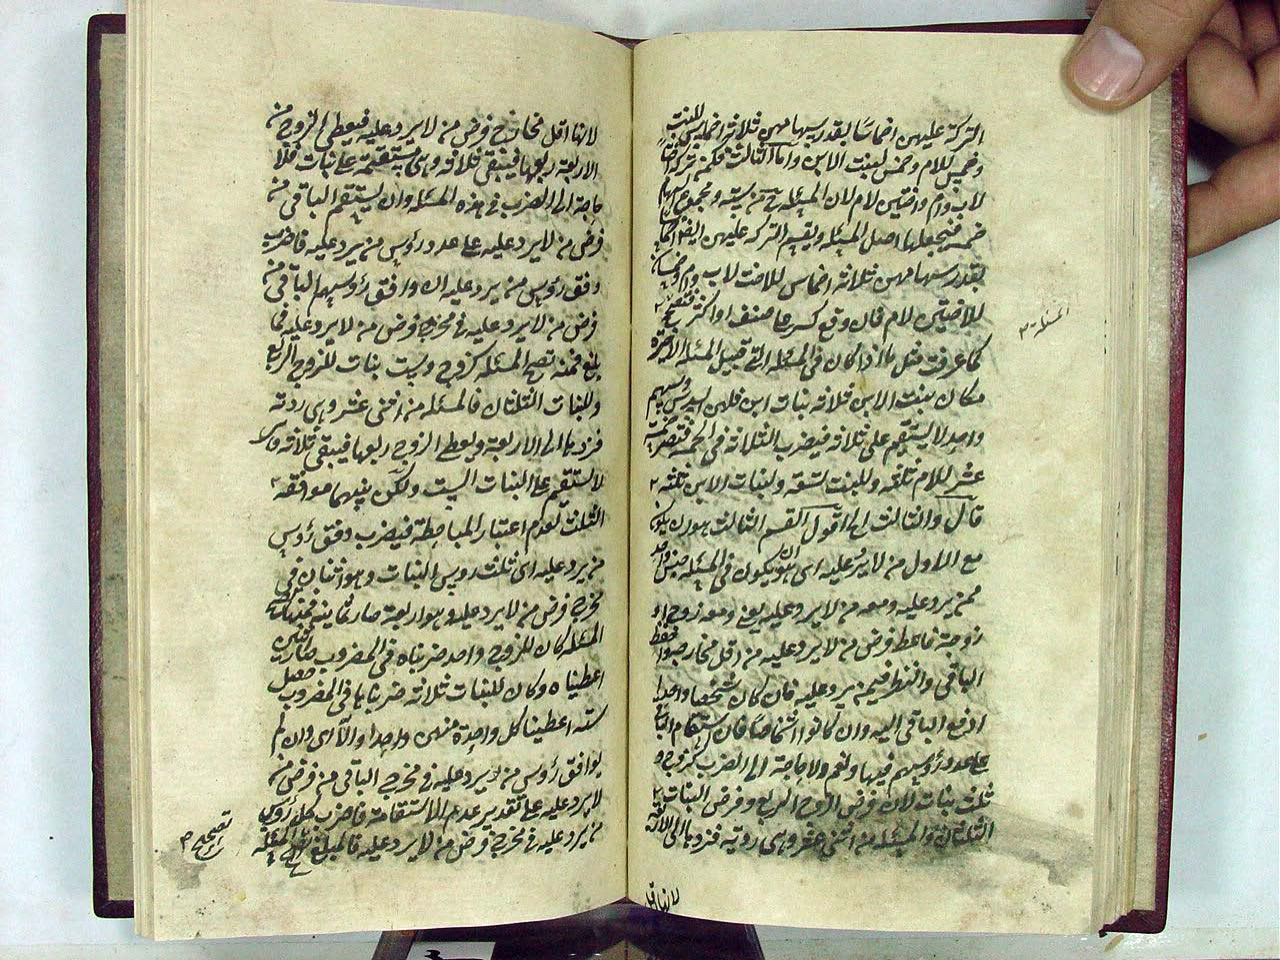 التركة عليهن اخماسًا بقدر سهامهن ثلاثة اخماس للبنت
وخمس للام وخمس لبنت الابن واما الثالث فكمن ترك اختا
لاب وام واختين لام لان المسئلة من ستة ومجموع السهام
خمسة فنجعلها اصل المسئلة ويقسم التركة عليهن ايضا
بقدر سهامهن ثلاثة اخماس للاخت لاب وام وخمسان
للاختين لام فان وقع كسر على صنف او اكثر فتصحح
كما عرفت مثل ما اذا كان في المسئلة التي قبيل المسئلة الاخيرة
مكان بنت الابن ثلاثة بنات ابن فلهن السدس وسهم
واحد لا يستقيم على ثلاثة فيضرب الثلاثة في الخمسة فتصير خمسة
عشر للام ثلاثة وللبنت تسعة ولبنات الابن ثلثة
قال والثالث الى اقول القسم الثالث هو ان يكون
مع الاول من لا يرد عليه اى هو ان يكون في المسئلة صنف واحد
ممن يرد عليه ومعه من لا يرد عليه يعنى ومعه زوج او
زوجة فاعط فرض من لا يرد عليه من اقل مخارجه واحفظ
الباقى وانظر فيمن يرد عليه فان كان شخصا واحدا
ادفع الباقى اليه وان كانوا اشخاصًا فان استقام الباقى
على عدد رؤسهم فيها ونعم ولا حاجة الى الضرب كزوج و
ثلث بنات لان فرض الزوج الربع وفرض البنات
الثلثان والمسئلة من اثنى عشر وهى ردية فنردها الى الاربعة
لانها اقل
المسئلة
لانها اقل مخارج فرض من لا يرد عليه فيعطى الزوج من
الاربعة ربعها فيبقى ثلاثة وهى مستقيمة على بنات فلا
حاجة الى الضرب في هذه المسئلة وان لم يستقم الباقى من
فرض من لا يرد عليه على عدد رؤس من يرد عليه فاضرب
وفق رؤس من يرد عليه ان وافق رؤسهم الباقى من
فرض من لا يرد عليه في مخرج فرض من لا يرد عليه فما
بلغ فمنه تصح المسئلة كزوج وست بنات للزوج الربع
وللبنات الثلثان فالمسئلة من اثنى عشر وهى ردية
فنردها الى الاربعة ويعطى الزوج ربعها فيبقى ثلاثة وهى
لا تستقيم على البنات الست ولكن بينهما موافقة
الثلث لعدم اعتبار المباحطة فيضرب وفق رؤس
من يرد عليه اى ثلث رؤس البنات وهو اثنان في
مخرج فرض من لا يرد عليه وهو اربعة صار ثمانية فمنها تصح
المسئلة كان للزوج واحد ضربناه في المضروب صار اثنين
اعطيناه وكان للبنات ثلاثة ضربناها في المضروب حصل
ستة اعطينا كل واحدة منهن واحدا والا اى وان لم
يوافق رؤس من يرد عليه مخرج الباقى من فرض من
لا يرد عليه على تقدير عدم الاستقامة فاضرب كل رؤس
من يرد عليه في مخرج فرض من لا يرد عليه فالمبلغ تصحيح المسئلة
تصحيح